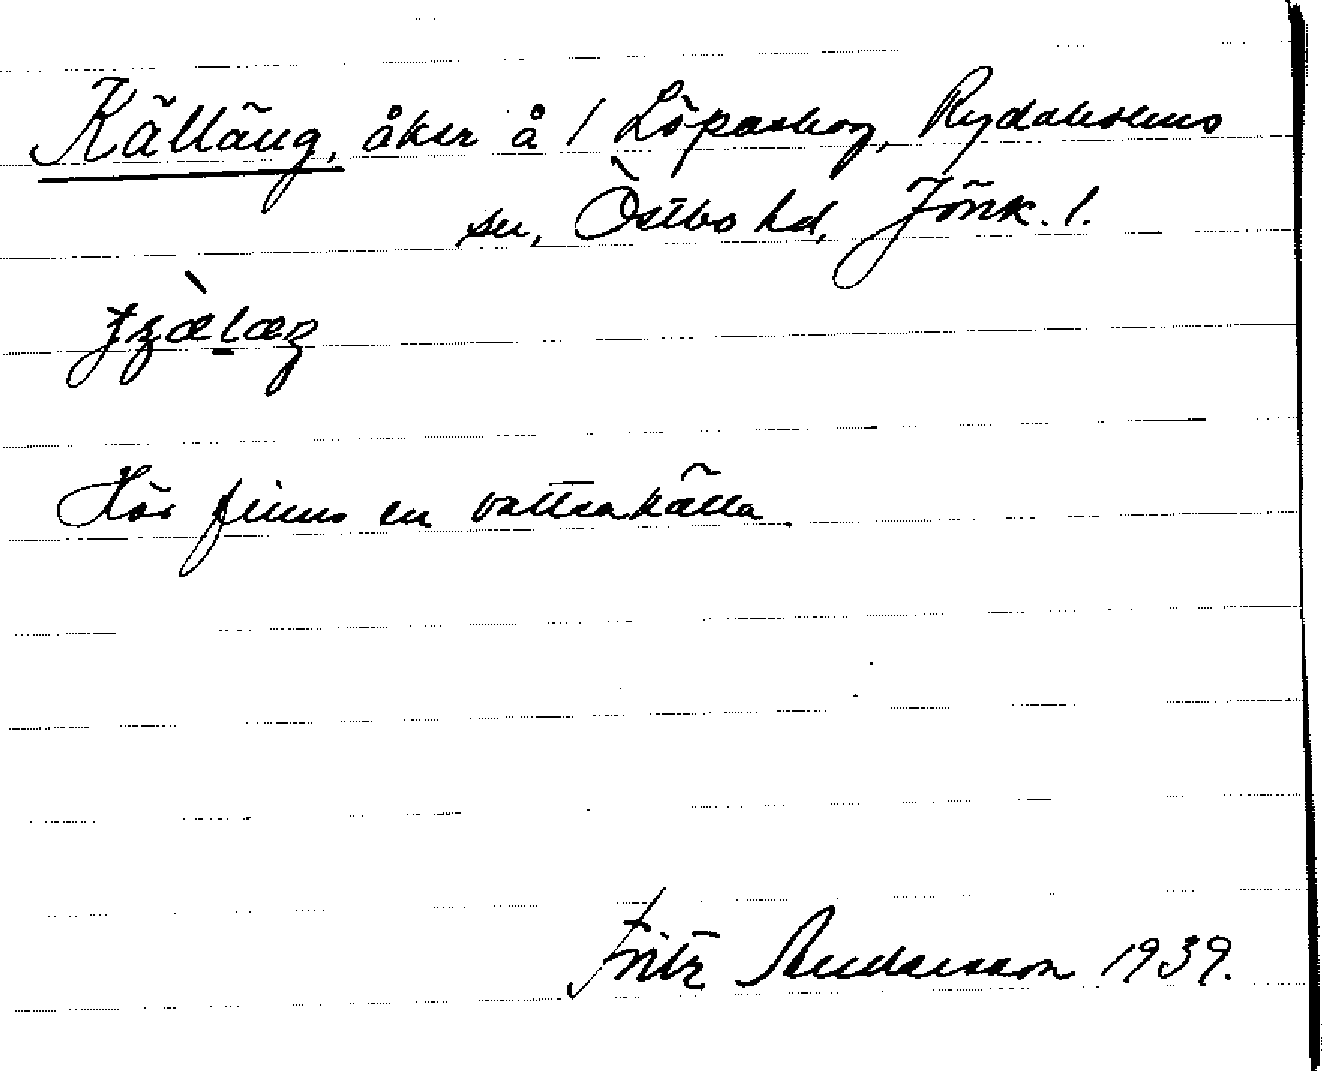 Källäng, åker å 1 Löparskog, Rydaholms
sn, Östbo hd, Jönk. l.
Här finns en vattenkälla
Fritz Andersson 1939.